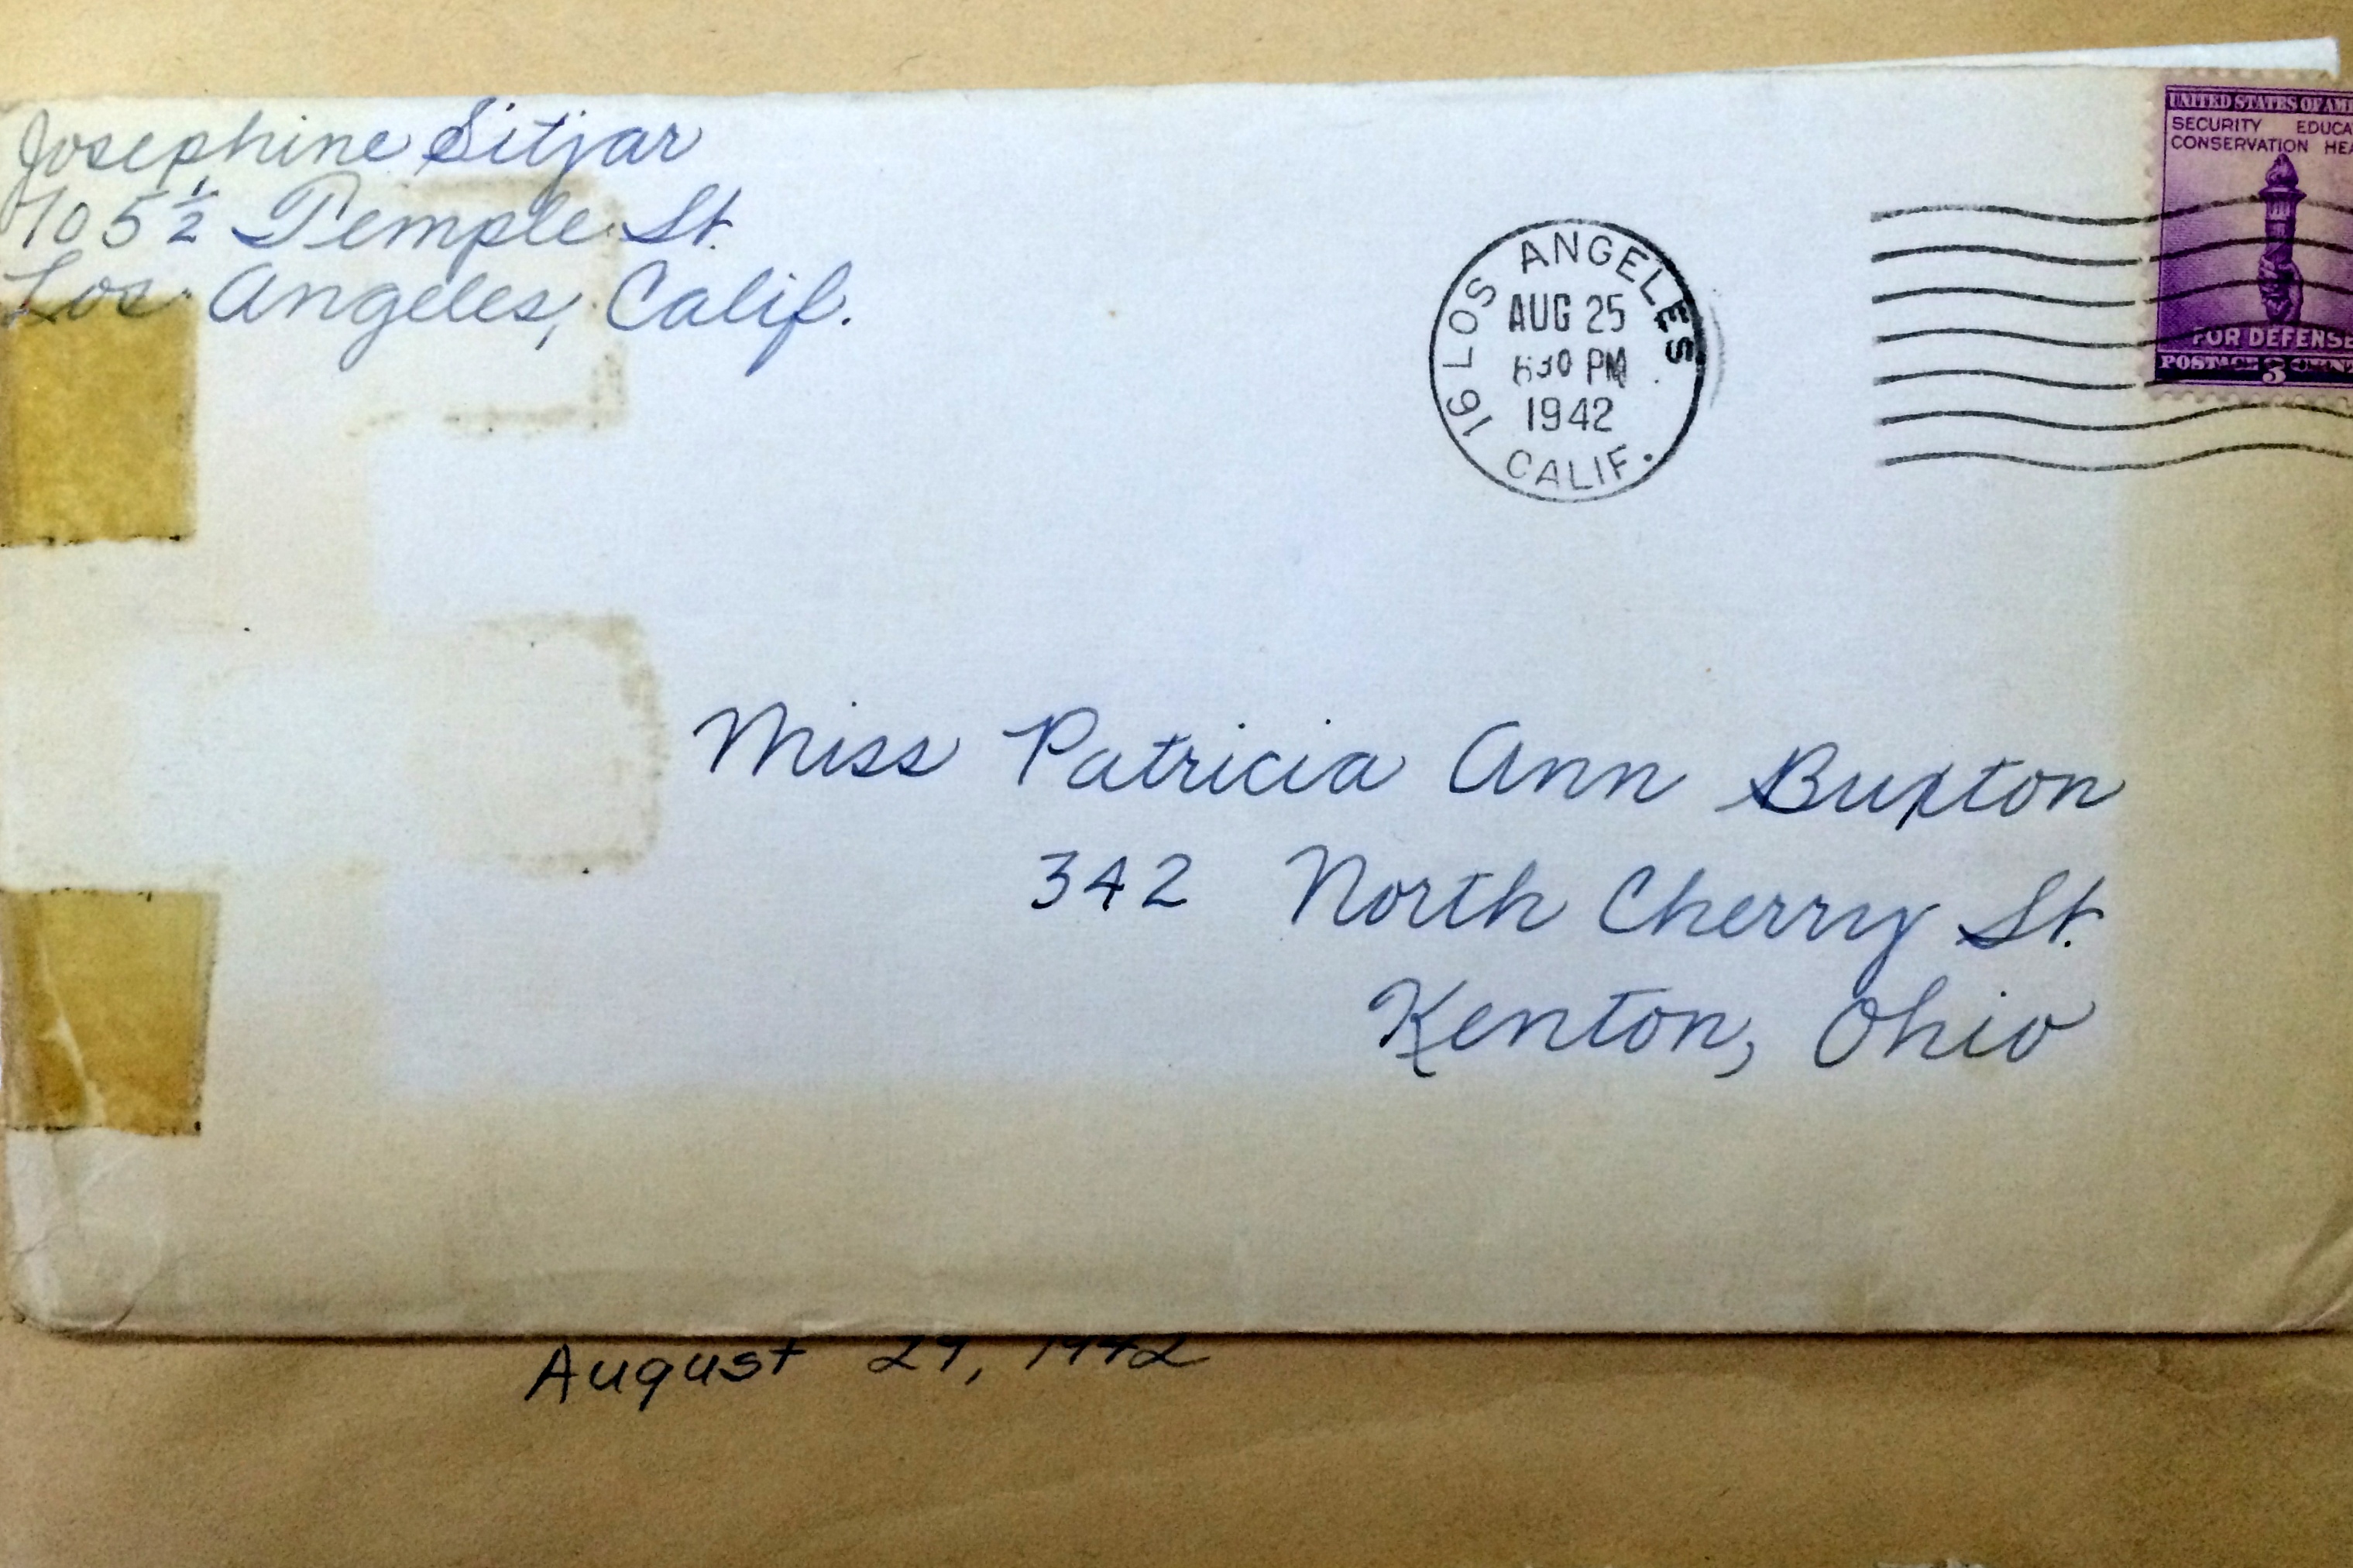 Josephine Sitjar
705 1/2 Temple St.
Los Angeles, Calif.
16 LOS ANGELES
AUG 25
630 PM
1942
CALIF.
UNITED STATES OF AM
SECURITY EDUCA
CONSERVATION HEA
FOR DEFENSE
POSTAGE 3 CENT
Miss Patricia Ann Buxton
342 North Cherry St.
Kenton, Ohio
August 29, 1942